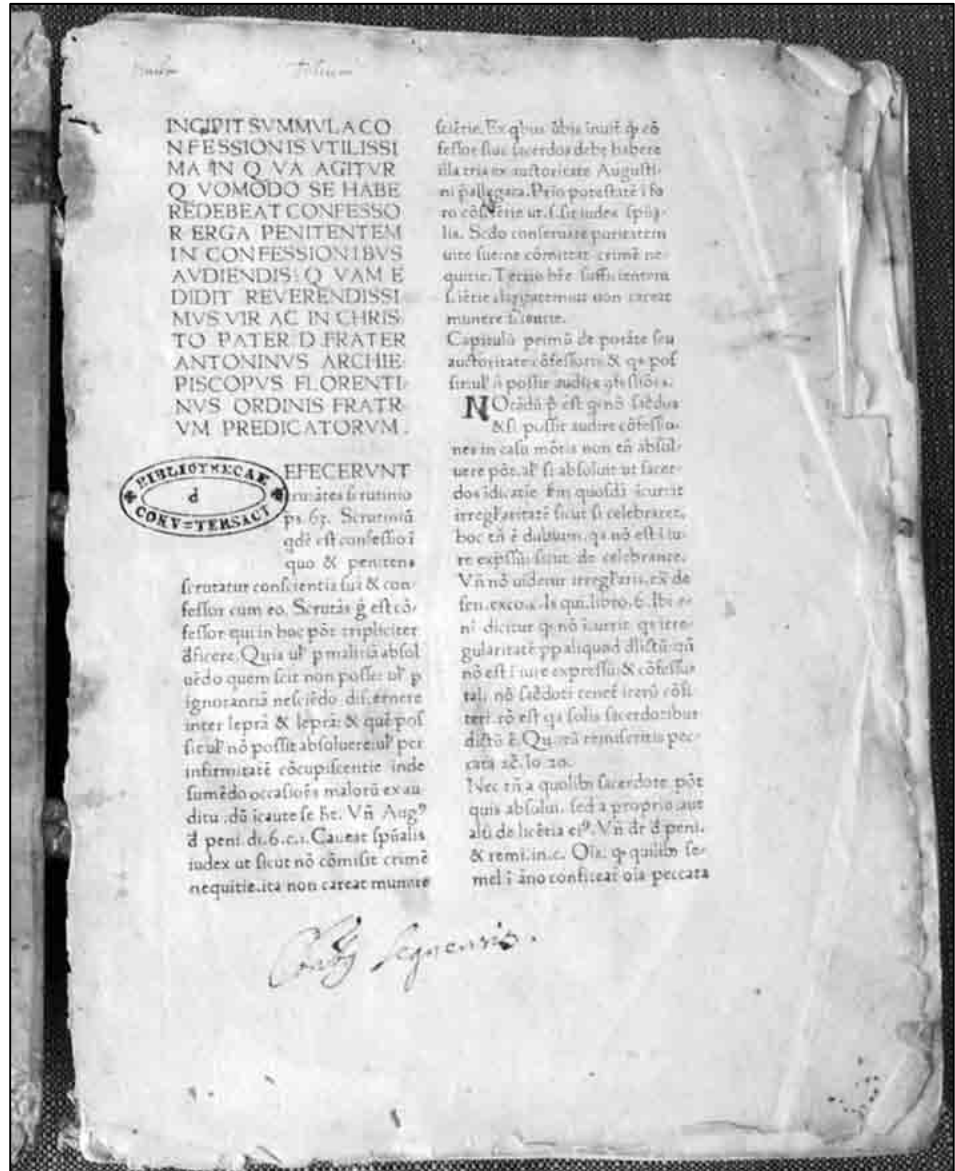 INCIPIT SVMMVLA CO
NFESSIONIS VTILISSI
MA IN Q VA AGITVR
Q VOMODO SE HABE
REDEBEAT CONFESSO
R ERGA PENITENTEM
IN CONFESSIONIBVS
AVDIENDIS: Q VAM E
DIDIT REVERENDISSI
MVS VIR AC IN CHRIS
TO PATER D. FRATER
ANTONINVS ARCHIE
PISCOPVS FLORENTI
NVS ORDINIS FRATR
VM PREDICATORVM.
BIBLIOTHECAE
d
CONV=TERSACT
EFECERVNT
ſcrutinio
ps. 67. Scrutiniũ
qdẽ eſt confeſſio ĩ
quo & penitens
ſcrutatur conſcientiã ſuã & con-
feſſor cum eo. Scrutãs g̃ eſt cõ-
feſſor qui in hoc põt tripliciter
dficere. Quia ul' p malitiã abſol
uẽdo quem ſcit non poſſe: ul' p
ignorantiã neſciẽdo diſcernere
inter leprã & leprã: & quẽ poſ
ſit ul' nõ poſſit abſoluere: ul' per
infirmitatẽ cõcupiſcentie inde
ſumẽdo occaſiões malorũ ex au
ditu: dũ icaute ſe ht. Vñ Aug⁹
d̃ peni. di. 6. c. 1. Caueat ſpũalis
iudex ut ſicut nõ cõmiſit crimẽ
nequitie. ita non careat munere
ſciẽtie. Ex qbus
feſſor ſiue ſacerdos debet habere
illa tria ex auctoritate Auguſti-
ni p̃allegata. Prio poteſtatẽ ĩ fo
ro cõſciẽtie ut. ſ. ſit iudex ſpũa-
lis. Sedo conſeruare puritatem
uite ſue: ne cõmittat crimẽ ne
quitie. Tertio
munere ſciẽtie.
Capitulũ primũ de potãte ſeu
auctoritate cõfeſſoris & qs poſ
ſit ul' ñ poſſit audire
NOtãdũ p̃ eſt q nõ
& ſi poſſit audire cõfeſſio-
nes in caſu mõrtis non tñ abſol-
uere põt. al' ſi abſoluit ut ſacer-
dos
irregl'aritatẽ ſicut ſi celebraret.
hoc tñ ẽ dubium. qa nõ eſt ĩ iu-
re expſſũ: ſicut de celebrante.
Vñ nõ uidetur irregl'aris. ex̃ de
ſen. exco. c. Is qui. libro. 6. Ibi e-
nĩ dicitur q nõ ĩcurrit qs irre-
gularitatẽ pp aliquod
nõ eſt ĩ iure expreſſũ: & cõfeſſus
tali nõ ſacẽdoti tenet iterũ cõfi
teri. rõ eſt qa ſolis ſacerdotibus
dictũ ẽ. Quorũ remiſeritis pec-
cata ꝛc̃. Io. 20.
Nec tñ a quolibȝ ſacerdote põt
quis abſolui. ſed a proprio aut
aliũ de licẽtia ei⁹. Vñ dr d̃ peni.
& remi. in. c. Oĩs. q quilibȝ ſe-
mel ĩ ãno confiteat oĩa peccata